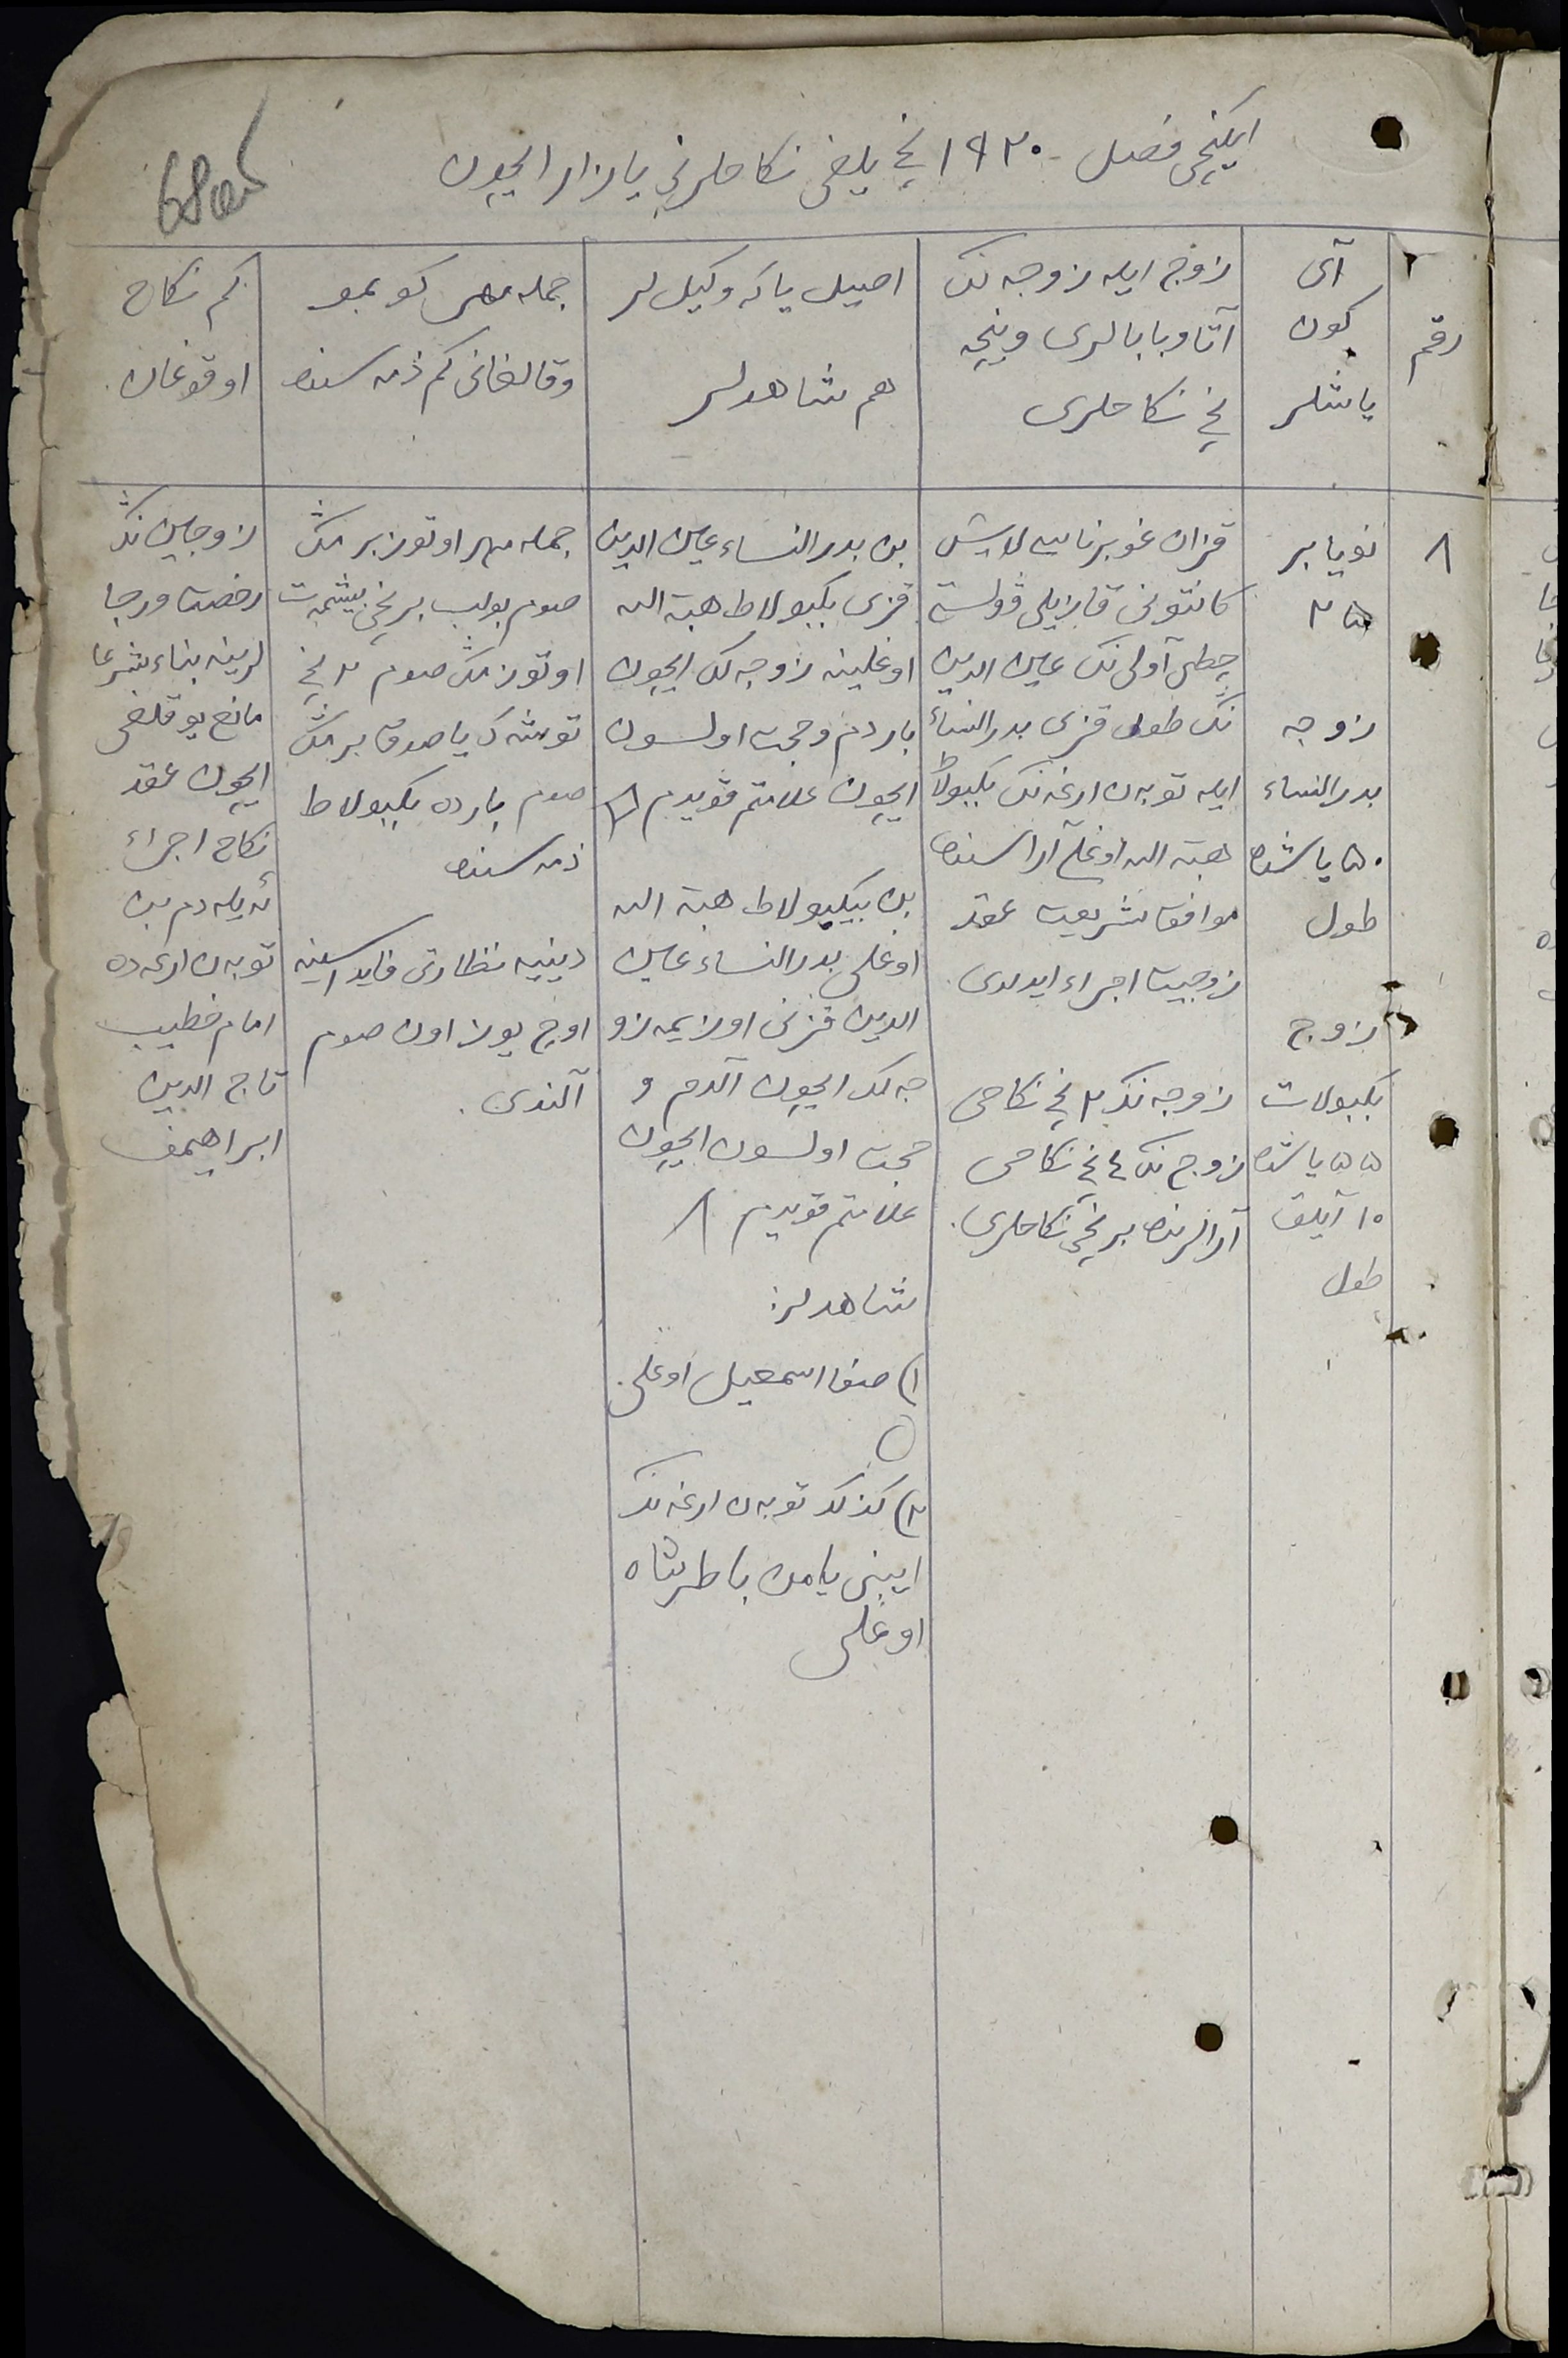 ایکنچی فصل - ١٩٢٠ نچی یلغی نکاحلرنی یازار ایچون
68 об
رقم
آی
کون
یاشلر
زوج ایله زوجه نك
آتا و بابالری و نیچه
نچی نکاحلری
اصیل یاکه وکیل لر
هم شاهدلر
جمله مهر کو بمو
وقالغانی کم ذمه سنده
کم نکاح
اوقوغان
٨
نویابر
٢٥
زوجه
بدرالنساء
٥٠ یاشنده
طول
زوج
بکبولات
٥٥ یاشنده
١٠ آیلق
طول
قزان غوبرناسه لایش
کانتونی قازیلی ڤولست
چطی آولی نك عین الدین
نڭ طول قزی بدرالنساء
ایله توبه ن ارغه نك بکبولاط
هبة الله اوغلی آراسنده
موافق شریعت عقد
زوجیت اجراء ایدلدی.
زوجه نك ٢ نچی نکاحی
زوج نك ٤ نچی نکاحی
آرالرنده برنچی نکاحلری.
بن بدرالنساء عین الدین
قزی بکبولاط هبة الله
اوغلینه زوجه لك ایچون
باردم وحجت اولسون
ایچون علامتم قویدم
بن بیکبولاط هبة الله
اوغلی بدرالنساء عین
الدین قزنی اوزیمه زو
جه لك ایچون آلدم و
حجت اولسون ایچون
علامتم قویدم ٨
شاهدلر:
١) صفا اسمعیل اوغلی.
٢) کذلك توبه ن ارغه نك
ایبنی یامن باطرشاه
اوغلی
جمله مهر اوتوز بر مڭ
صوم بولب برنچی بیشمت
اوتوز مڭ صوم ٢ نچی
توشه ك یاصدق بر مڭ
صوم بارده بکبولاط
ذمه سنده
دینیه نظارتی فایداسینه
اوچ یوز اون صوم
آلندی.
زوجین نڭ
رخصت ورجا
لرینه بناء شرعا
مانع یوقلغی
ایچون عقد
نکاح اجراء
ئه یله دم بن
توبه ن ارغه ده
امام خطیب
تاج الدین
ابراهیمف